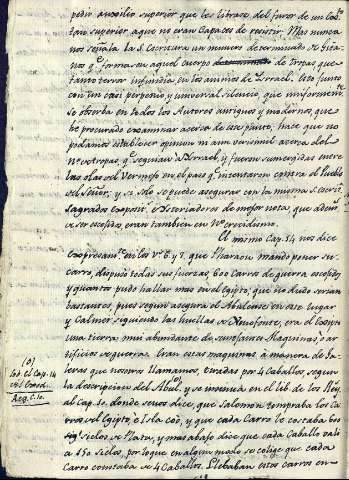 pedir auxilio superior que les librase del furor de un Cas-
superior, a que no eran Capaces de resistir. Mas nunca
nos señala la S. Escritura un numero determinado de Gita-
nos q.e formasen aquel cuerpo de tropas que
tanto terror infundia en los animos de Israel. Esto junto
con un casi perpetuo, y universal silencio, que uniformem.te
se observa en todos los Autores antiguos y modernos, que
he procurado examinar acerca de este punto, hace que no
podamos establecer opinion ni aun verisimil acerca del
n.o de tropas, q.e seguian a Israel, y fueron sumergidas entre
las olas del Vermejo en el paso q.e intentaron contra el Pueblo
del Señor, y se Solo se puede asegurar con la misma S. Escrit.
sagrados expositor. e Historiadores de mejor nota, que además
de ser escojidos, eran tambien en N.o crecidisimo.
El mismo Cap. 14 nos dice
expresam.te en los v.s 6. y 7. que Pharaon mandó poner su
carro, dispuso todas sus fuerzas, 600 Carros de guerra escojidos,
y quantos pudo hallar mas en el Egipto, que no dudo serian
bastantes, pues segun asegura el Abulense en este lugar
y Calmet siguiendo las huellas de Xenofonte, era el Egipto
una tierra mui abundante de semejantes Maquinas, o ar-
tificios de guerra. Eran estas maquinas à manera de Ga-
leras que nosotros llamamos, tiradas por 4 Caballos, segun
la descripcion del Abul.e, y se insinua en el lib. de los Rey.
al Cap. 10. donde se nos dice, que Salomon compraba los Ca-
rros del Egipto, e Isla Cóà, y que cada Carro le costaba 600
siclos de Plata, y mas abajo dice que cada Caballo valia
a 150 siclos, por loque en algun modo se colige que cada
Carro constaba de 4 Caballos. Llebaban estos carros en-
(o)
Cap. 14
del Exod.
Reg. C. 10.